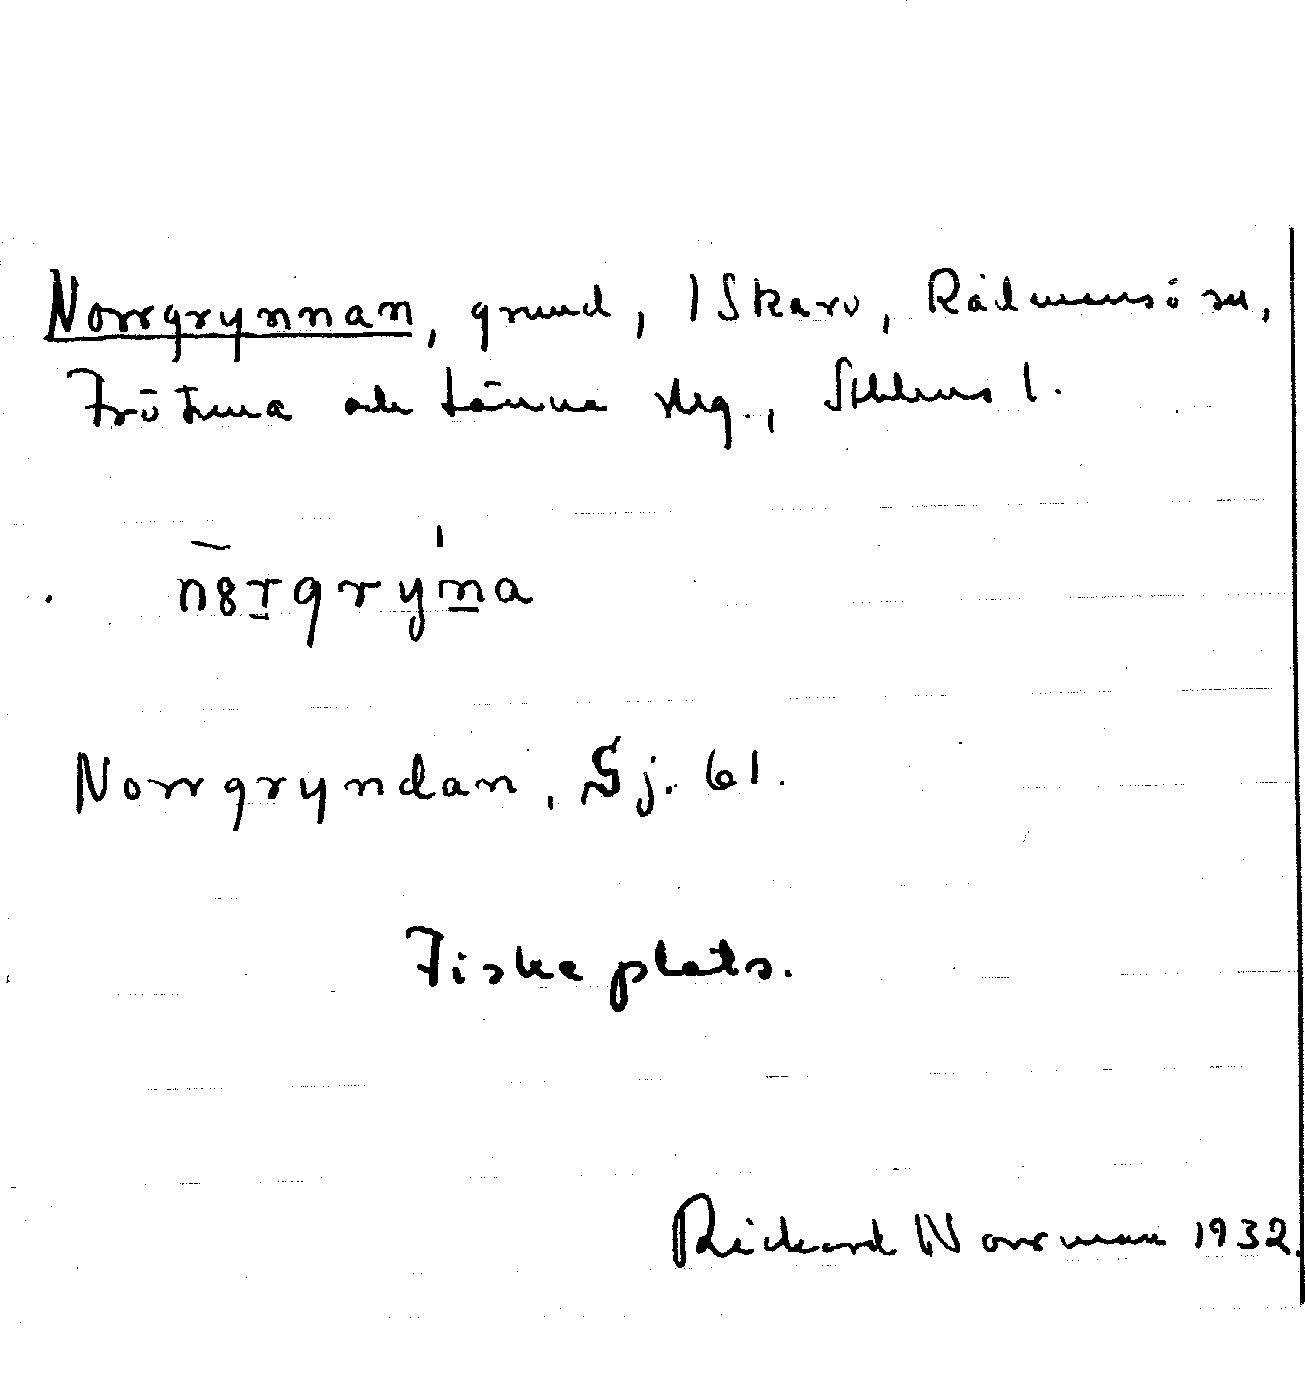 Norrgrynnan, grund, I Skarv, Rådmansö sn,
Frötuna och Länna skg., Sthlms l.
Norrgryndan, Sj. 61.
Fiskeplats.
Rickard Norrman 1932.